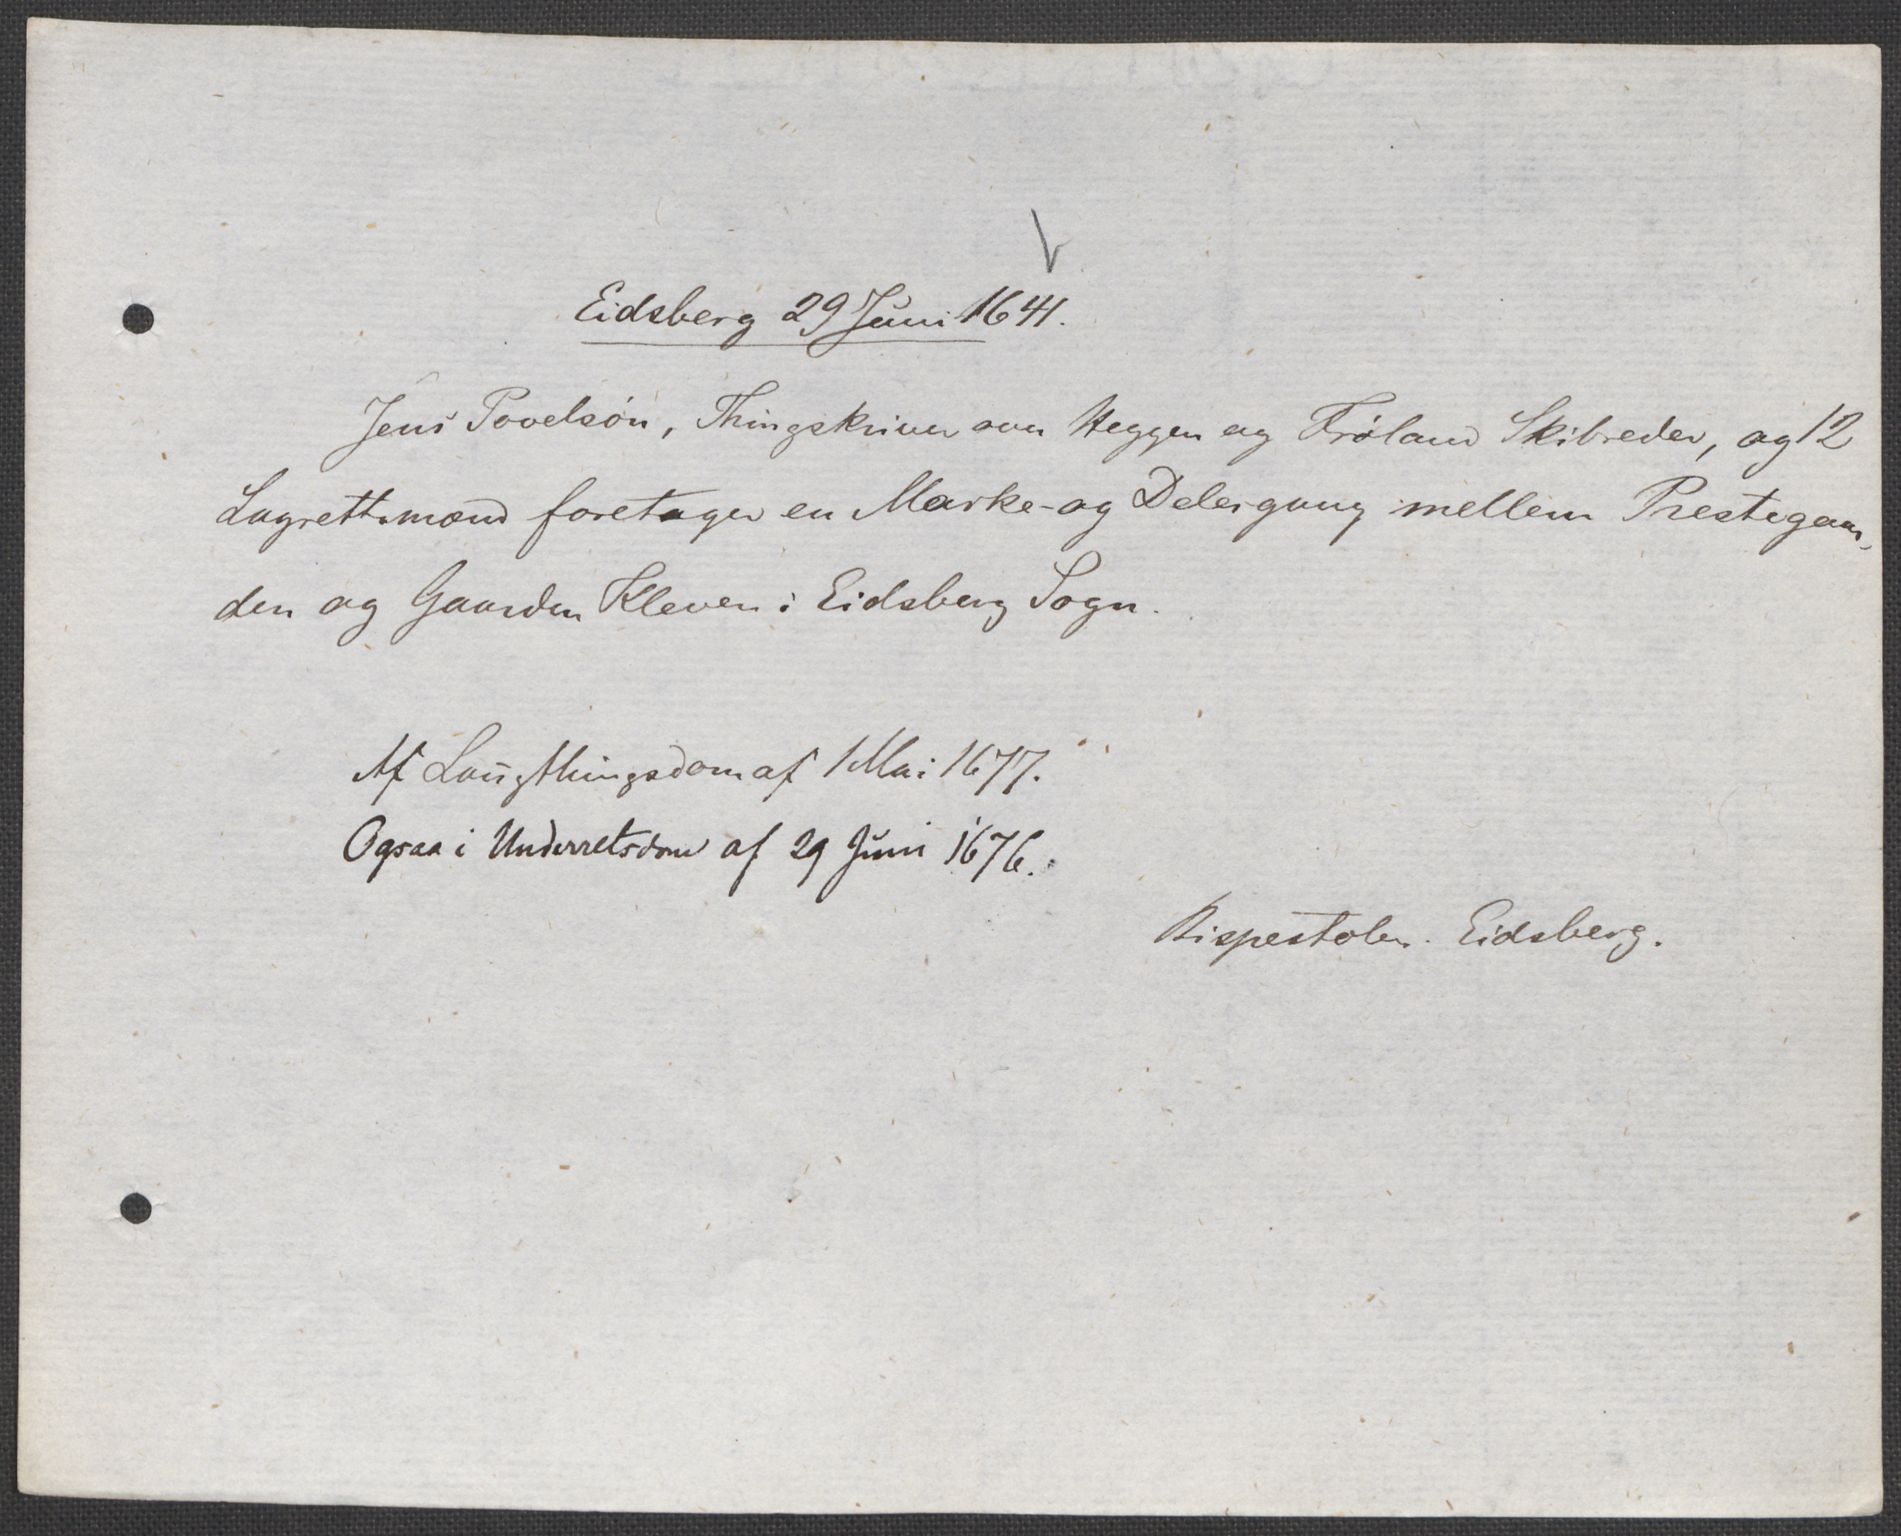 Eidsberg 29 Juni 1641.
Jens Povelsön, Thingskriver over Heggen og Fröland Skibreder, og 12
Lagrettemænd foretager en Marke- og Delesgang mellem Prestegaar-
den og Gaarden Kleven i Eidsberg Sogn.
Af Laugthingsdom af 1 Mai 1677.
Ogsaa i Underretsdom af 29 Juni 1676.
Bispestolen. Eidsberg.